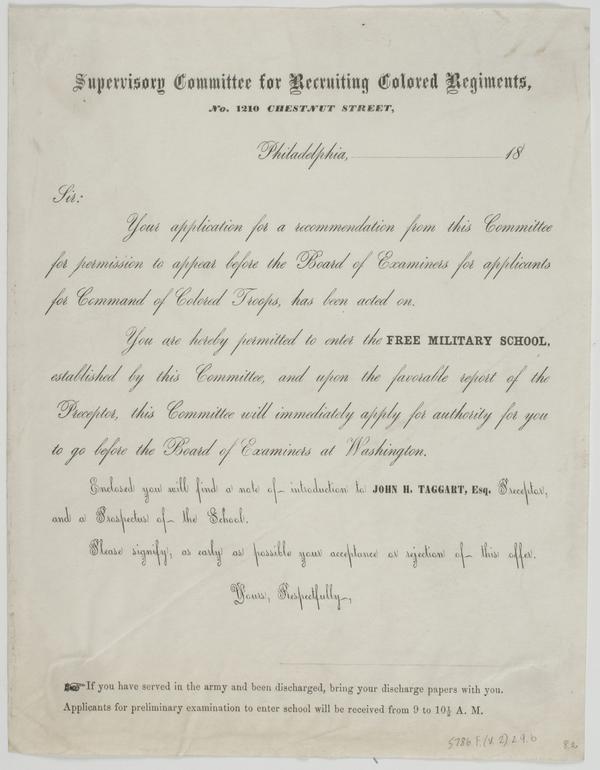 Supervisory Committee for Recruiting Colored Regiments,
No. 1210 CHESTNUT STREET,
Philadelphia, 18
Sir:
Your application for a recommendation from this Committee
for permission to appear before the Board of Examiners for applicants
for Command of Colored Troops, has been acted on.
You are hereby permitted to enter the FREE MILITARY SCHOOL,
established by this Committee, and upon the favorable report of the
Preceptor, this Committee will immediately apply for authority for you
to go before the Board of Examiners at Washington.
Enclosed you will find a note of introduction to JOHN H. TAGGART, Esq. Preceptor,
and a Prospectus of the School.
Please signify, as early as possible your acceptance or rejection of this offer.
Yours, Respectfully,
☞ If you have served in the army and been discharged, bring your discharge papers with you.
Applicants for preliminary examination to enter school will be received from 9 to 10½ A. M.
5786.F.(v.2).29.b